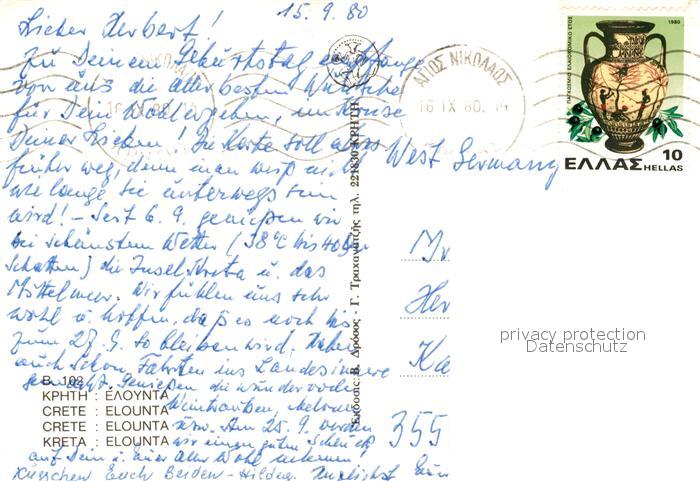 15.9.80
Lieber Herbert!
Zu Deinem Geburtstag empfange
von uns die allerbesten Wünsche
für Dein Wohlergehen, im Kreise
Deiner Lieben! Die Karte soll etwas
früher weg, denn man weiß nie,
wie lange sie unterwegs sein
wird! - Seit 6. 9. genießen wir
bei schönstem Wetter (38°C bis 40
Schatten) die Insel Kreta u. das
Mittelmeer. Wir fühlen uns sehr
wohl u. hoffen, daß es noch bis
zum 27. 9. so bleiben wird. Haben
auch schon Fahrten ins Landesinnere
gemacht. Genießen die wundervollen
Weintrauben, Melonen
usw. Am 25. 9. werden
wir einen guten Schluck
auf Dein u. Euer aller Wohl nehmen
Küsschen Euch Beiden - Herzlichst Eure
B. 102
ΚΡΗΤΗ : ΕΛΟΥΝΤΑ
CRETE : ELOUNTA
CRETE : ELOUNTA
KRETA : ELOUNTA
Εκδοσις: Β. Δρόσος - Γ. Τραχανατζής τηλ. 221830 ΚΡΗΤΗ
ΑΓΙΟΣ ΝΙΚΟΛΑΟΣ
16 IX 80. 14
ΠΑΓΚΟΣΜΙΟ ΕΛΑΙΟΚΟΜΙΚΟ ΕΤΟΣ
1980
10
ΕΛΛΑΣ HELLAS
West Germany
Her
Ka
355
privacy protection
Datenschutz